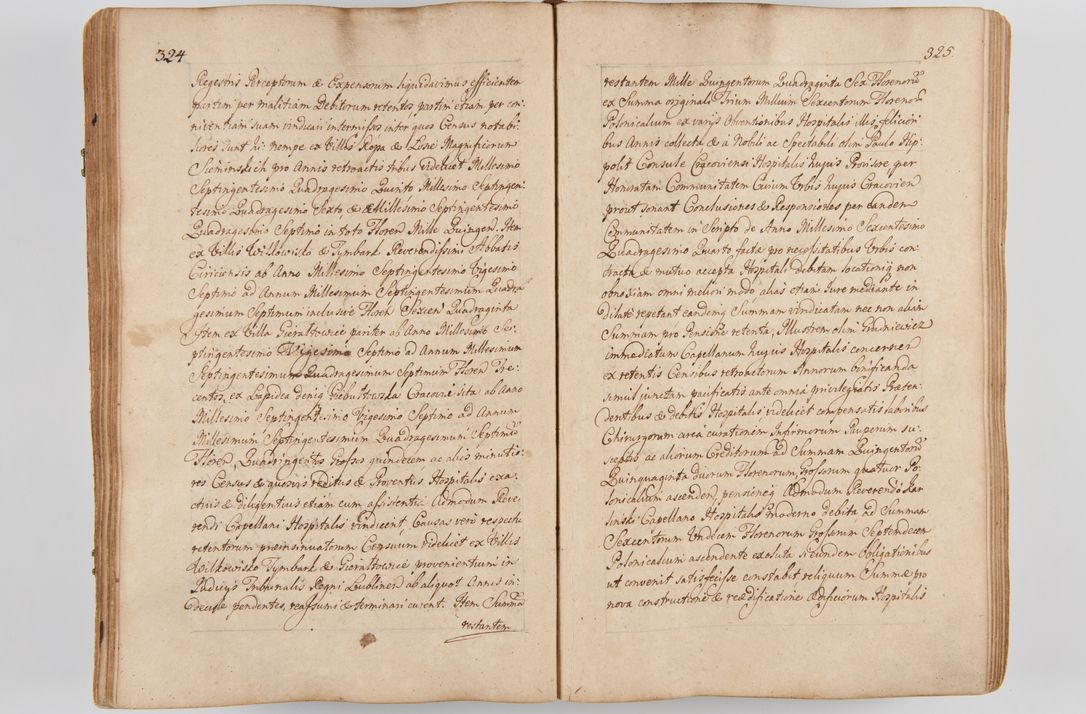 324
Regestris Perceptorum & Expensorum liquidavimus efficienter
partim per malitiam Debitorum retentos partim etiam per con-
niventiam suam vindicari intermissos inter quos Census notabi-
liores sunt hi: nempe ex Villis Kopa & Losie Magnificorum
Siemińskich pro Annis retroactis tribus videlicet Millesimo
Septingentesimo Quadragesimo Quinto Millesimo Septingen-
tesimo Quadragesimo Sexto & Millesimo Septingentesimo
Quadragesimo Septimo in toto Floren Mille Quingen. Item
ex Villis Wilkowisko & Tymbark Reverendissimi Abbatis
Ciriciensis ab Anno Millesimo Septingentesimo Vigesimo
Septimo ad Annum Millesimum Septingentesimum Quadra-
gesimum Septimum inclusive Floren Sexcen Quadraginta
Item ex Villa Gierałtowice pariter ab Anno Millesimo Sep-
tingentesimo Vigesimo Septimo ad Annum Millesimum
Septingentesimum Quadragesimum Septimum Floren Tre-
centos, ex Lapidea deniq Cracoviæ sita ab Anno
Millesimo Septingentesimo Vigesimo Septimo ad Annum
Millesimum Septingentesimum Quadragesimum Septimũ
Floren Quadringentos Grossos quindecem ac alios minutio-
res Census & quosvis reditus & Proventus Hospitalis exa-
ctius & diligentius etiam cum assistentia Admodum Reve-
rendi Capellani Hospitalis vindicent, Causas vero respectu
retentorum præinsinuatorum Censuum videlicet ex Villis
Wilkowisko Tymbark & Gierałtowice provenientium in
Iudicijs Tribunalis Regni Lublinen ab aliquot Annis in-
decise pendentes, reassumi & terminari curent. Item Summã
restantem
325.
restantem Mille Quingentorum Quadraginta Sex Florenorũ
ex Summa originali Trium Millium Sexcentorum Florenorũ
Polonicalium ex varijs Obventionibus Hospitalis illis feliciori
bus Annis collecta & à Nobili ac Spectabili olim Paulo Hip-
polit Consule Cracoviensi Hospitalis huius Provisore per
Honoratam Communitatem Civium Urbis huius Cracovien
prout sonant Conclusiones & Responsiones per eandem
Communitatem in Scripto de Anno Millesimo Sexcentesimo
Quadragesimo Quarto facta pro necessitatibus Urbis con-
tracta & mutuo accepta Hospitali debitam locationiq non
obnoxiam omni meliori modo, alias etiam Iure mediante in
dilate repetant eandemq Summam vindicatam nec non aliam
Summam pro Pensione retenta, Illustrem olim Grudniewicz
immediatum Capellanum huius Hospitalis concerner
ex retentis Censibus retroactorum Annorum bonificanda
simul junctam pacificatis ante omnia privilegiatis Præten-
dentibus & debitis Hospitalis videlicet compensatis laboribus
Chirurgorum circa curationem Infirmorum Pauperum su-
sceptis ac aliorum Creditorum ad Summam Quingentorũ
Quinquaginta duorum Florenorum, Grossorum quatuor Po-
lonicalium ascenden, pensioneq Admodum Reverendo
Capellano Hospitalis moderno debita ad Summam
Sexcentorum Undecem Florenorum Grossorum Septendecem
Polonicalium ascendente exoluta secundem Obligationibus
ut convenit satisfecisse constabit reliquum Summæ pro
nova constructione & reædificatione Ædificiorum Hospitalis